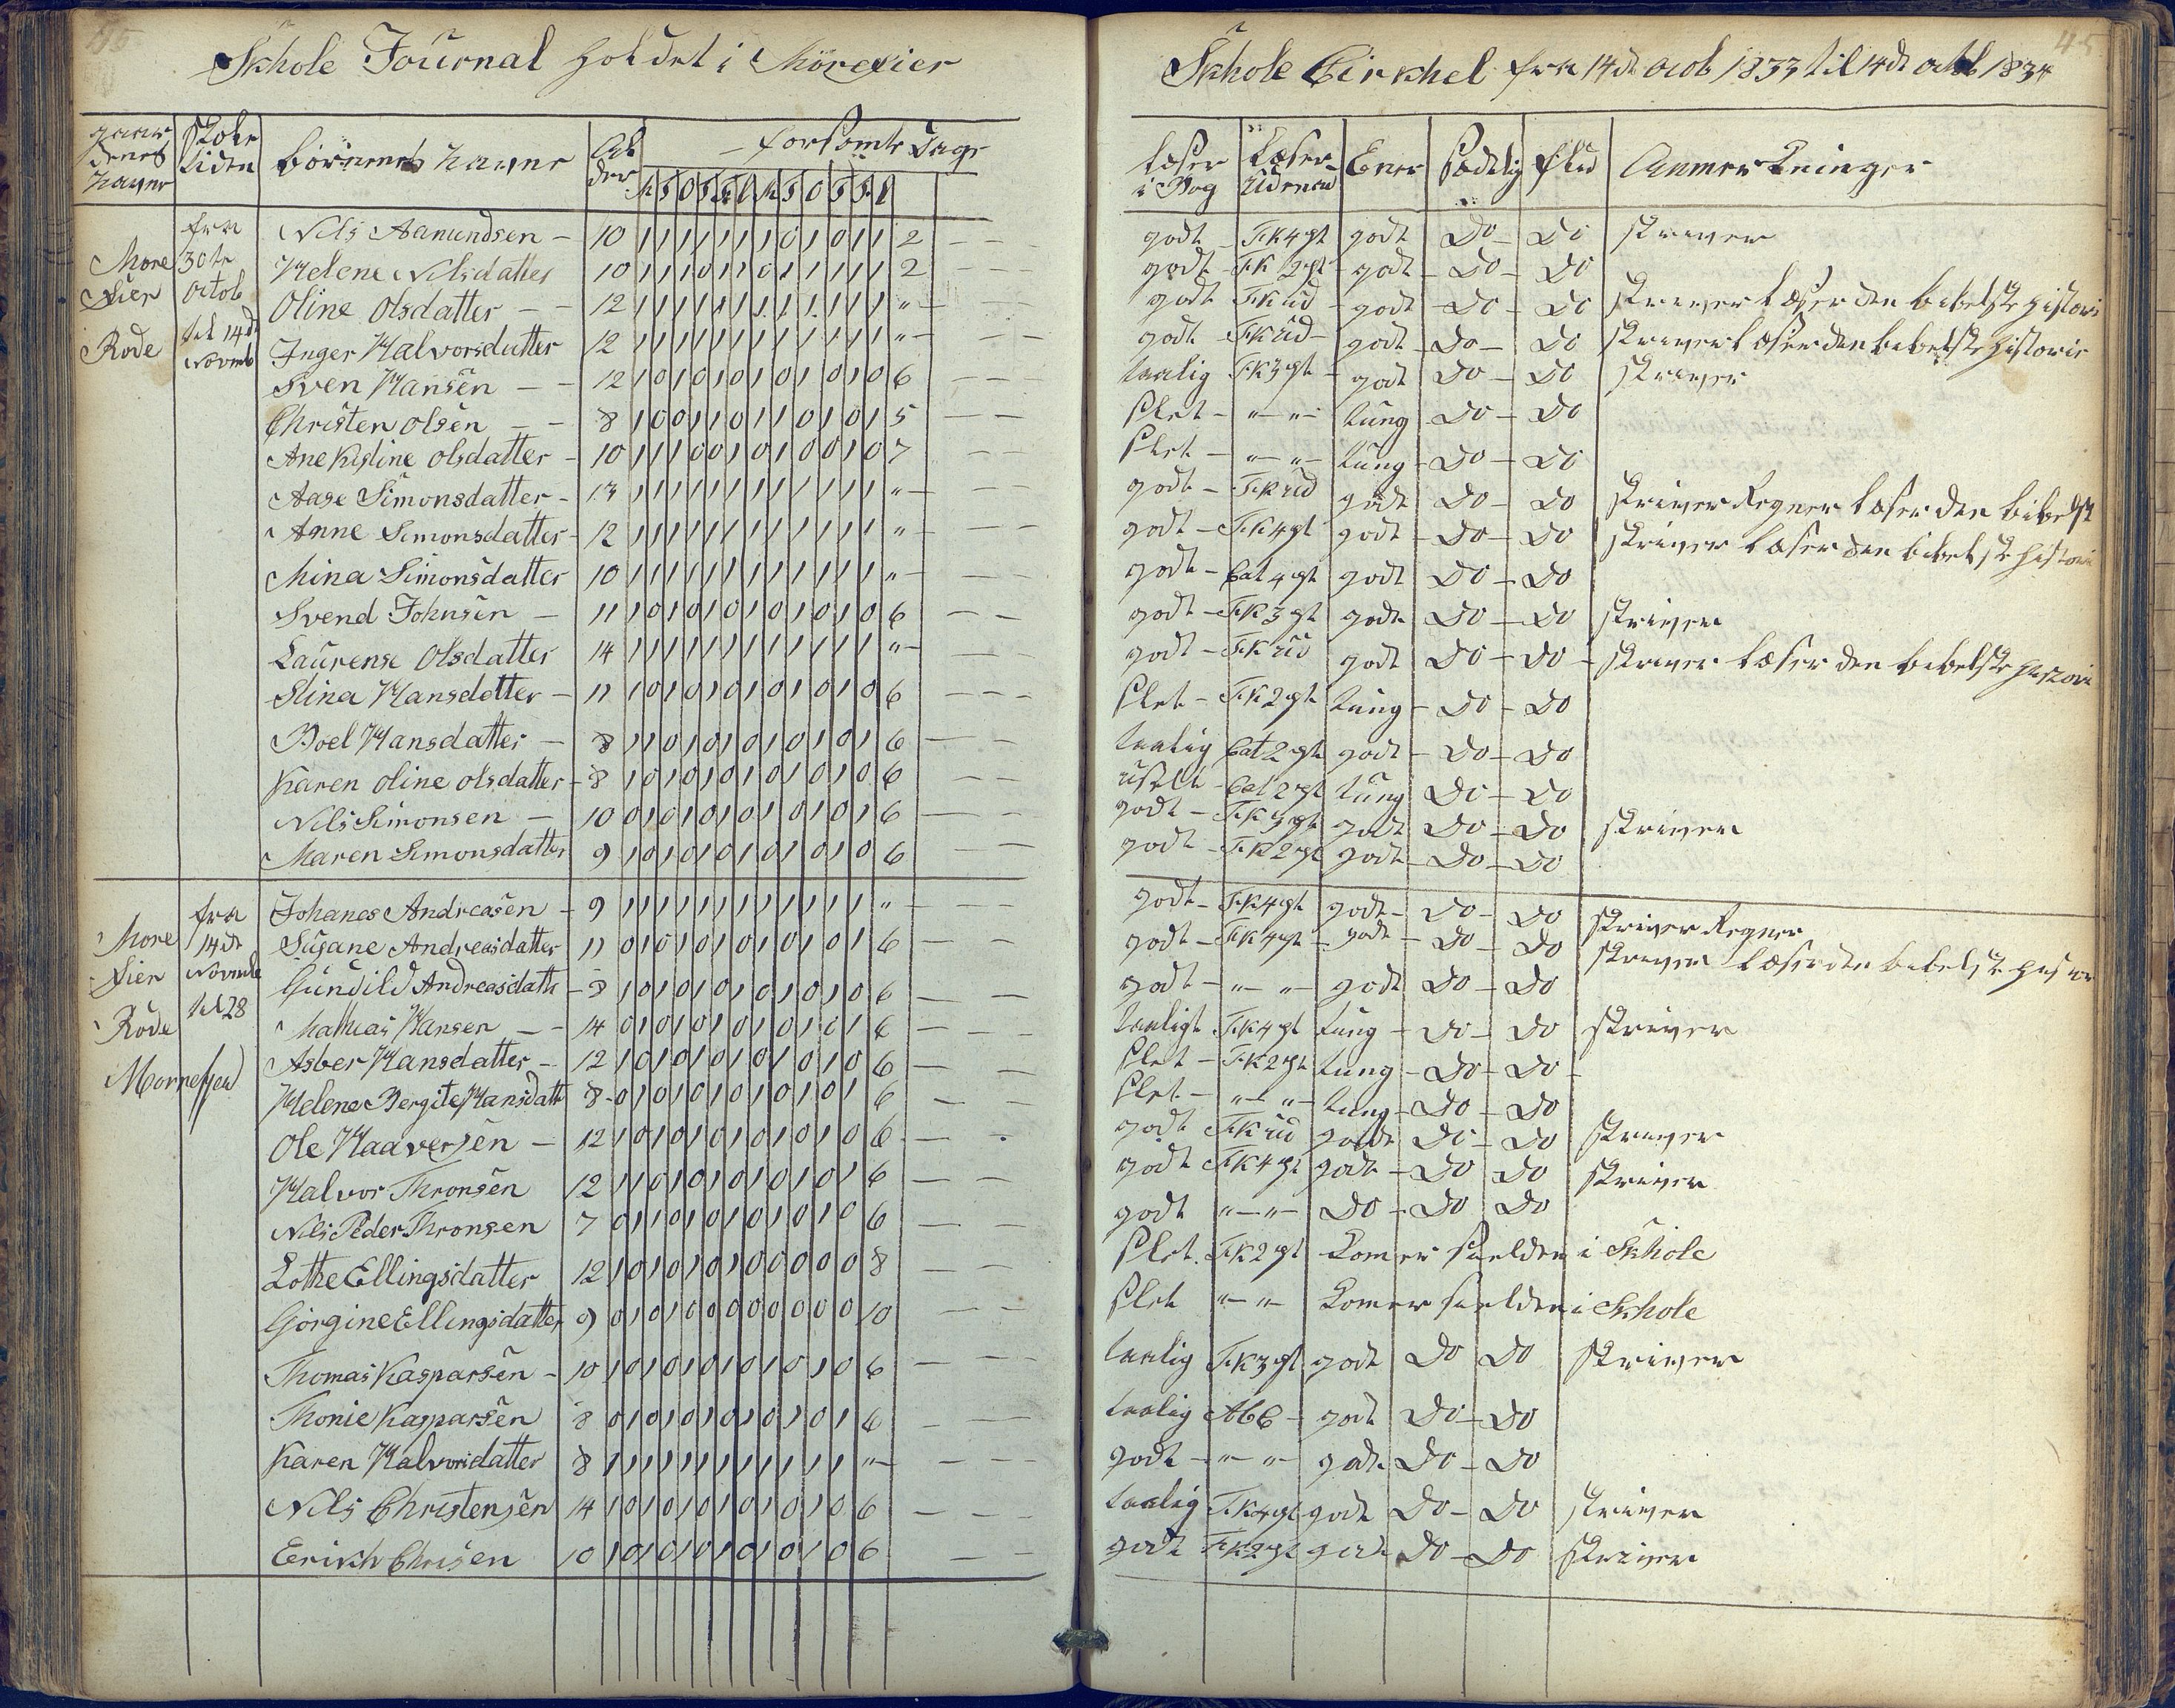 45
Skhole Journal holdet i Mörefier
gaardenes Navne
Skole tiden
börnenes Navne
Alder
forsömte Dage
M T O T F L M T O T F L
More Fier Röde
fra 30te Octob til 14de Novmb
Nils Aamundsen - 10 1 1 1 1 1 1 1 0 1 0 1 1 2
Helene Nilsdatter 10 1 1 1 0 1 1 0 1 1 1 1 1 2
Oline Olsdatter - 12 1 1 1 1 1 1 1 1 1 1 1 1 "
Inger Halvorsdatter 12 1 1 1 1 1 1 1 1 1 1 1 1 "
Sven Hansen - 12 1 0 1 0 1 0 1 0 1 0 1 0 6
Christen Olsen - 8 1 0 0 1 1 0 1 1 0 1 0 1 5
Ane Kistine Olsdatter - 10 1 1 1 0 0 1 0 1 0 0 1 0 7
Aase Simonsdatter - 13 1 1 1 1 1 1 1 1 1 1 1 1 "
Anne Simonsdatter - 12 1 1 1 1 1 1 1 1 1 1 1 1 "
Mina Simonsdatter 10 1 1 1 1 1 1 1 1 1 1 1 1 "
Svend Johnsen - 11 1 0 1 0 1 0 1 0 1 0 1 0 6
Laurense Olsdatter 14 1 1 1 1 1 1 1 1 1 1 1 1 "
Stina Hansdatter - 11 1 0 1 0 1 0 1 0 1 0 1 0 6
Boel Hansdatter - 8 1 1 0 1 0 1 0 1 0 1 0 1 6
Karen Oline Olsdatter - 8 1 0 1 0 1 0 1 0 1 0 1 0 6
Nils Simonsen - 10 0 1 0 1 0 1 0 1 0 1 0 1 6
Maren Simonsdatter 9 1 0 1 0 1 0 1 0 1 0 1 0 6
More Fier Röde Mornessen
fra 14de Novmb til 28
Johanes Andreasen - 9 1 1 1 1 1 1 1 1 1 1 1 1 "
Susane Andreasdatter 11 0 1 0 1 0 1 0 1 0 1 0 1 6
Gunild Andreasdatt - 8 1 0 1 0 1 0 1 0 1 0 1 0 6
Mathias Hansen - 14 0 1 0 1 0 1 0 1 0 1 0 1 6
Asber Hansdatter - 12 1 0 1 0 1 0 1 0 1 0 1 0 6
Helene Bergite Hansdatt 8 0 1 0 1 0 1 0 1 0 1 0 1 6
Ole Haaversen - 12 1 0 1 0 1 0 1 0 1 0 1 0 6
Halvor Thronsen 12 1 1 0 1 0 1 0 1 0 1 0 1 6
Nils Peder Thronsen 7 0 1 1 0 1 0 1 0 1 0 1 0 6
Lothe Ellingsdatter 12 1 0 1 0 1 0 1 0 0 0 0 0 8
Görgine Ellingsdatter 9 0 1 0 1 0 0 0 0 0 0 0 0 10
Thomas Kasparsen - 10 1 0 1 0 1 0 1 0 1 0 1 0 6
Thonie Kasparsen 8 0 1 0 1 0 1 0 1 0 1 0 1 6
Karen Halvorsdatter 8 1 1 1 1 1 1 1 1 1 1 1 1 "
Nils Christensen 14 1 0 1 0 1 0 1 0 1 0 1 0 6
Erikh Chrisen 10 1 0 1 0 1 0 1 0 1 0 1 0 6
45
Skhole Cirkhel fra 14de Octob 1833 til 14de octob 1834
læser i Bog
Læser Udenad
Ener
Sædelig
flid
Anmerkninger
godt - F.K 4 pt godt Do - Do skriver
godt - F.K 2 pt - godt - Do - Do
godt F.K ud - godt - Do - Do skriver læser den bibelske histori
godt F.K ud - godt Do - Do skriver læser den bibelske historie
taalig F.K 3 pt - godt Do - Do skriver
slet - " - " - tung - Do - Do
slet - " - " - tung - Do - Do
godt - F.K ud godt Do - Do skriver Regner læser den bibelsk
godt - F.K 4 pt godt - Do - Do skriver læser den bibelske histori
godt - Cat 4 pt godt Do - Do
godt - F.K 3 pt godt - Do - Do skriver
godt - F.K ud godt Do - Do - skriver læser den bibelske histori
slet - F.K 2 pt tung - Do - Do
taalig Cat 2 pt godt - Do - Do
uselt - Cat 2 pt tung Do - Do
godt - F.K 3 pt godt Do - Do skriver
godt - F.K 2 pt godt - Do - Do
godt - F.K 4 pt godt - Do - Do skriver Regner
godt - F.K 4 pt - godt - Do - Do skriver læser den bibelske histor
godt - " - " - godt Do - Do
taaligt F.K 4 pt tung - Do - Do skriver
slet - F.K 2 pt tung - Do - Do -
slet - " - " - tung - Do - Do
godt F.K ud godt Do - Do skriver
godt F.K 4 pt godt - Do Do skriver
godt " - " - Do - Do Do
slet. F.K 2 pt Komer sielden i Skhole
slet " - " - Komer sielden i Skhole
taalig F.K 3 pt godt Do Do skriver
taalig AbC - godt Do - Do
godt - " - " - godt Do - Do
taalig F.K 4 pt godt Do - Do skriver
godt F.K 2 pt godt Do - Do skriver